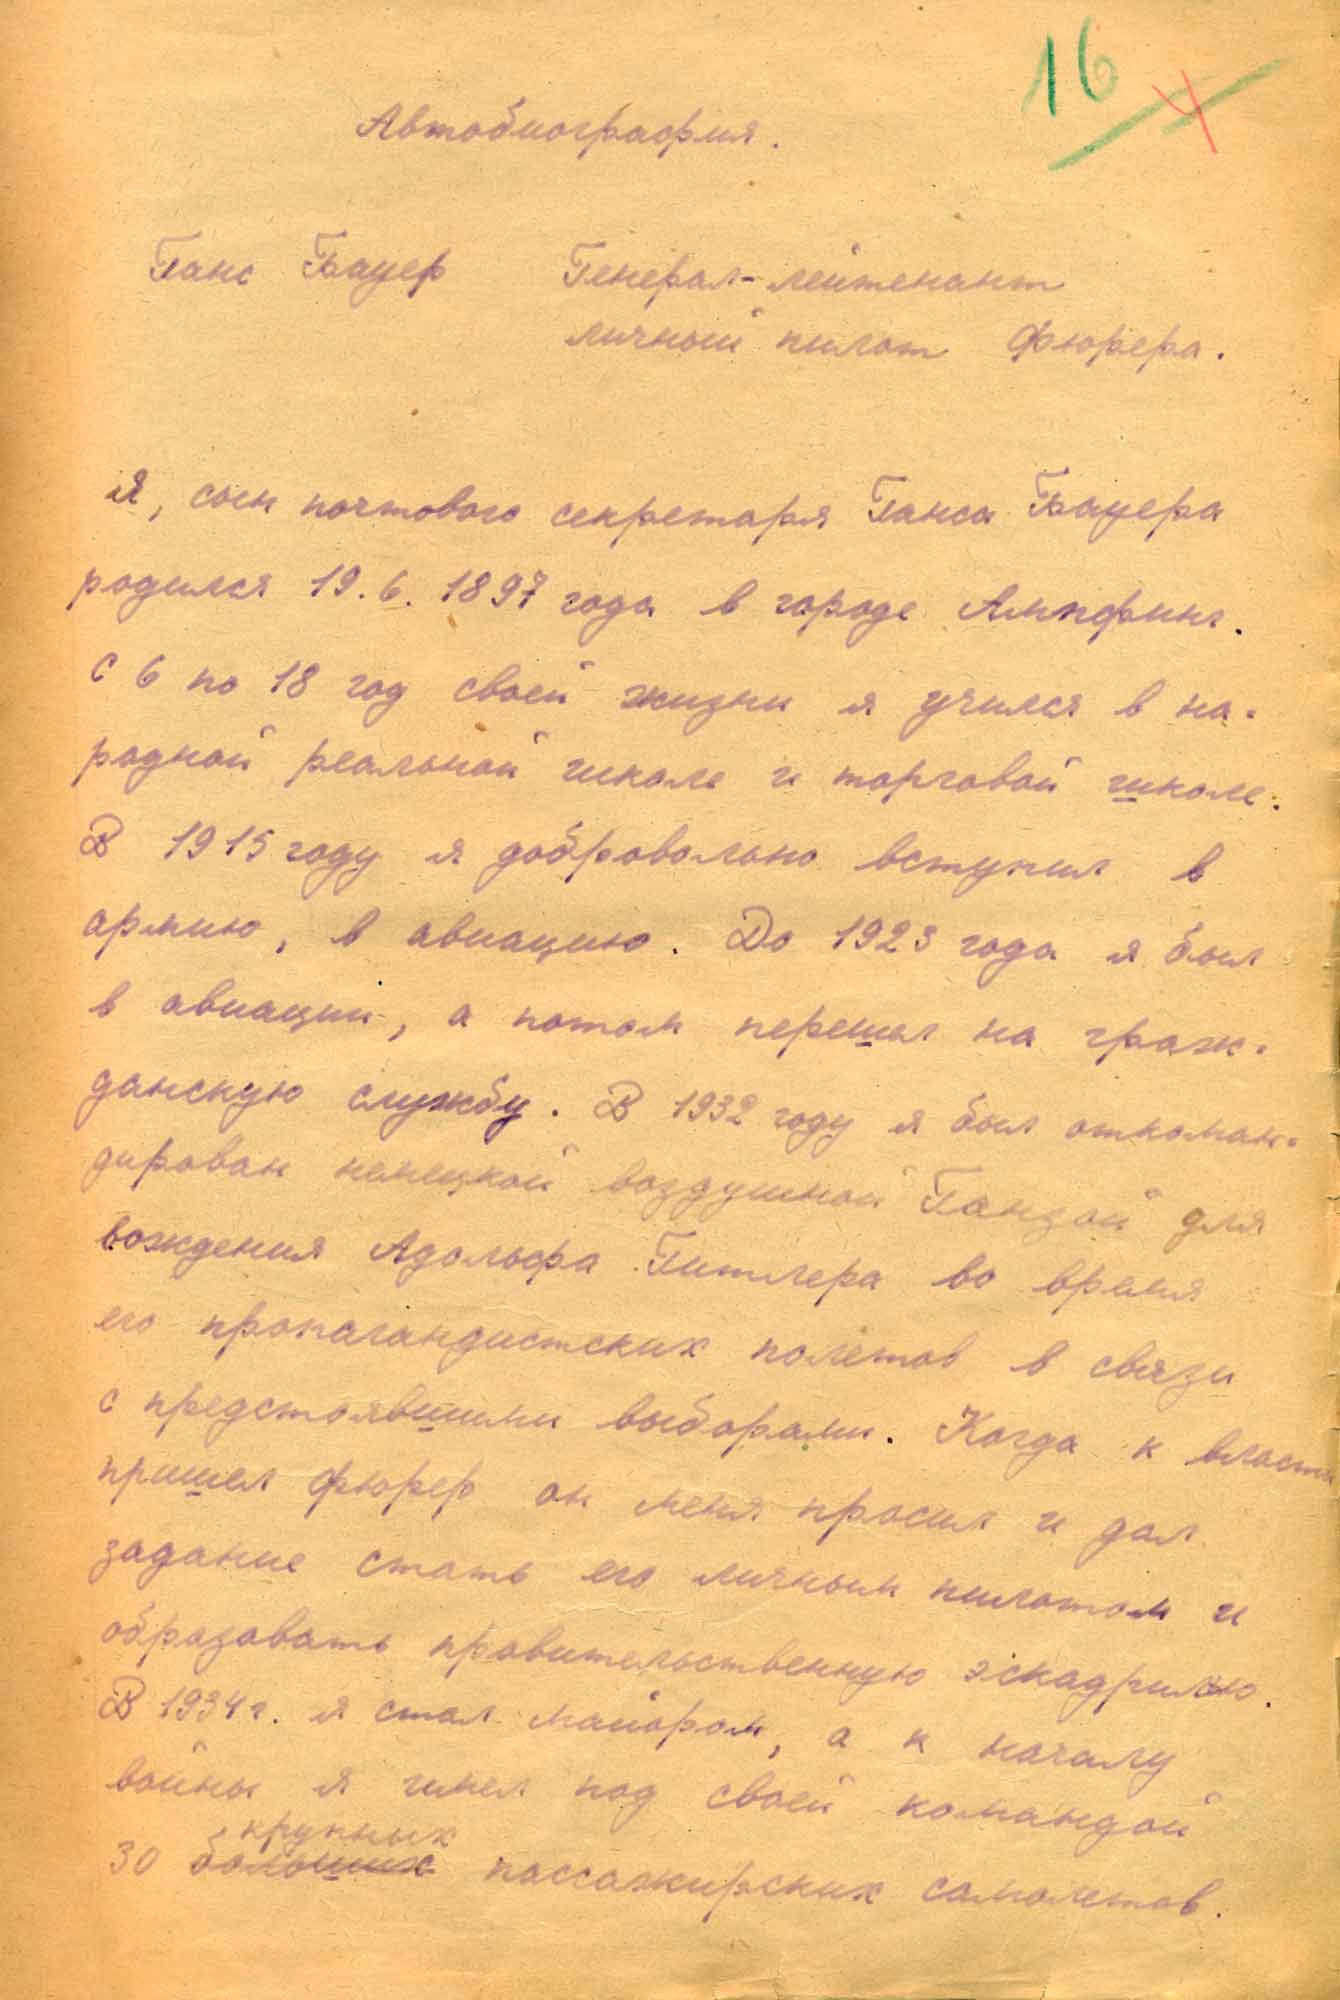 16
4
Автобиография.
Ганс Бауер Генерал-лейтенант
личный пилот Фюрера.
Я, сын почтового секретаря Ганса Бауера
родился 19.6.1897 года в городе Ампфинг.
С 6 по 18 год своей жизни я учился в на-
родной реальной школе и торговой школе.
В 1915 году я добровольно вступил в
армию, в авиацию. До 1923 года я был
в авиации, а потом перешел на граж-
данскую службу. В 1932 году я был откоман-
дирован немецкой воздушной Ганзой для
вождения Адольфа Гитлера во время
его пропагандистских полетов в связи
с предстоявшими выборами. Когда к власти
пришел фюрер он меня просил и дал
задание стать его личным пилотом и
образовать правительственную эскадрилью.
В 1934 г. я стал майором, а к началу
войны я имел под своей командой
крупных
30 больших пассажирских самолетов.